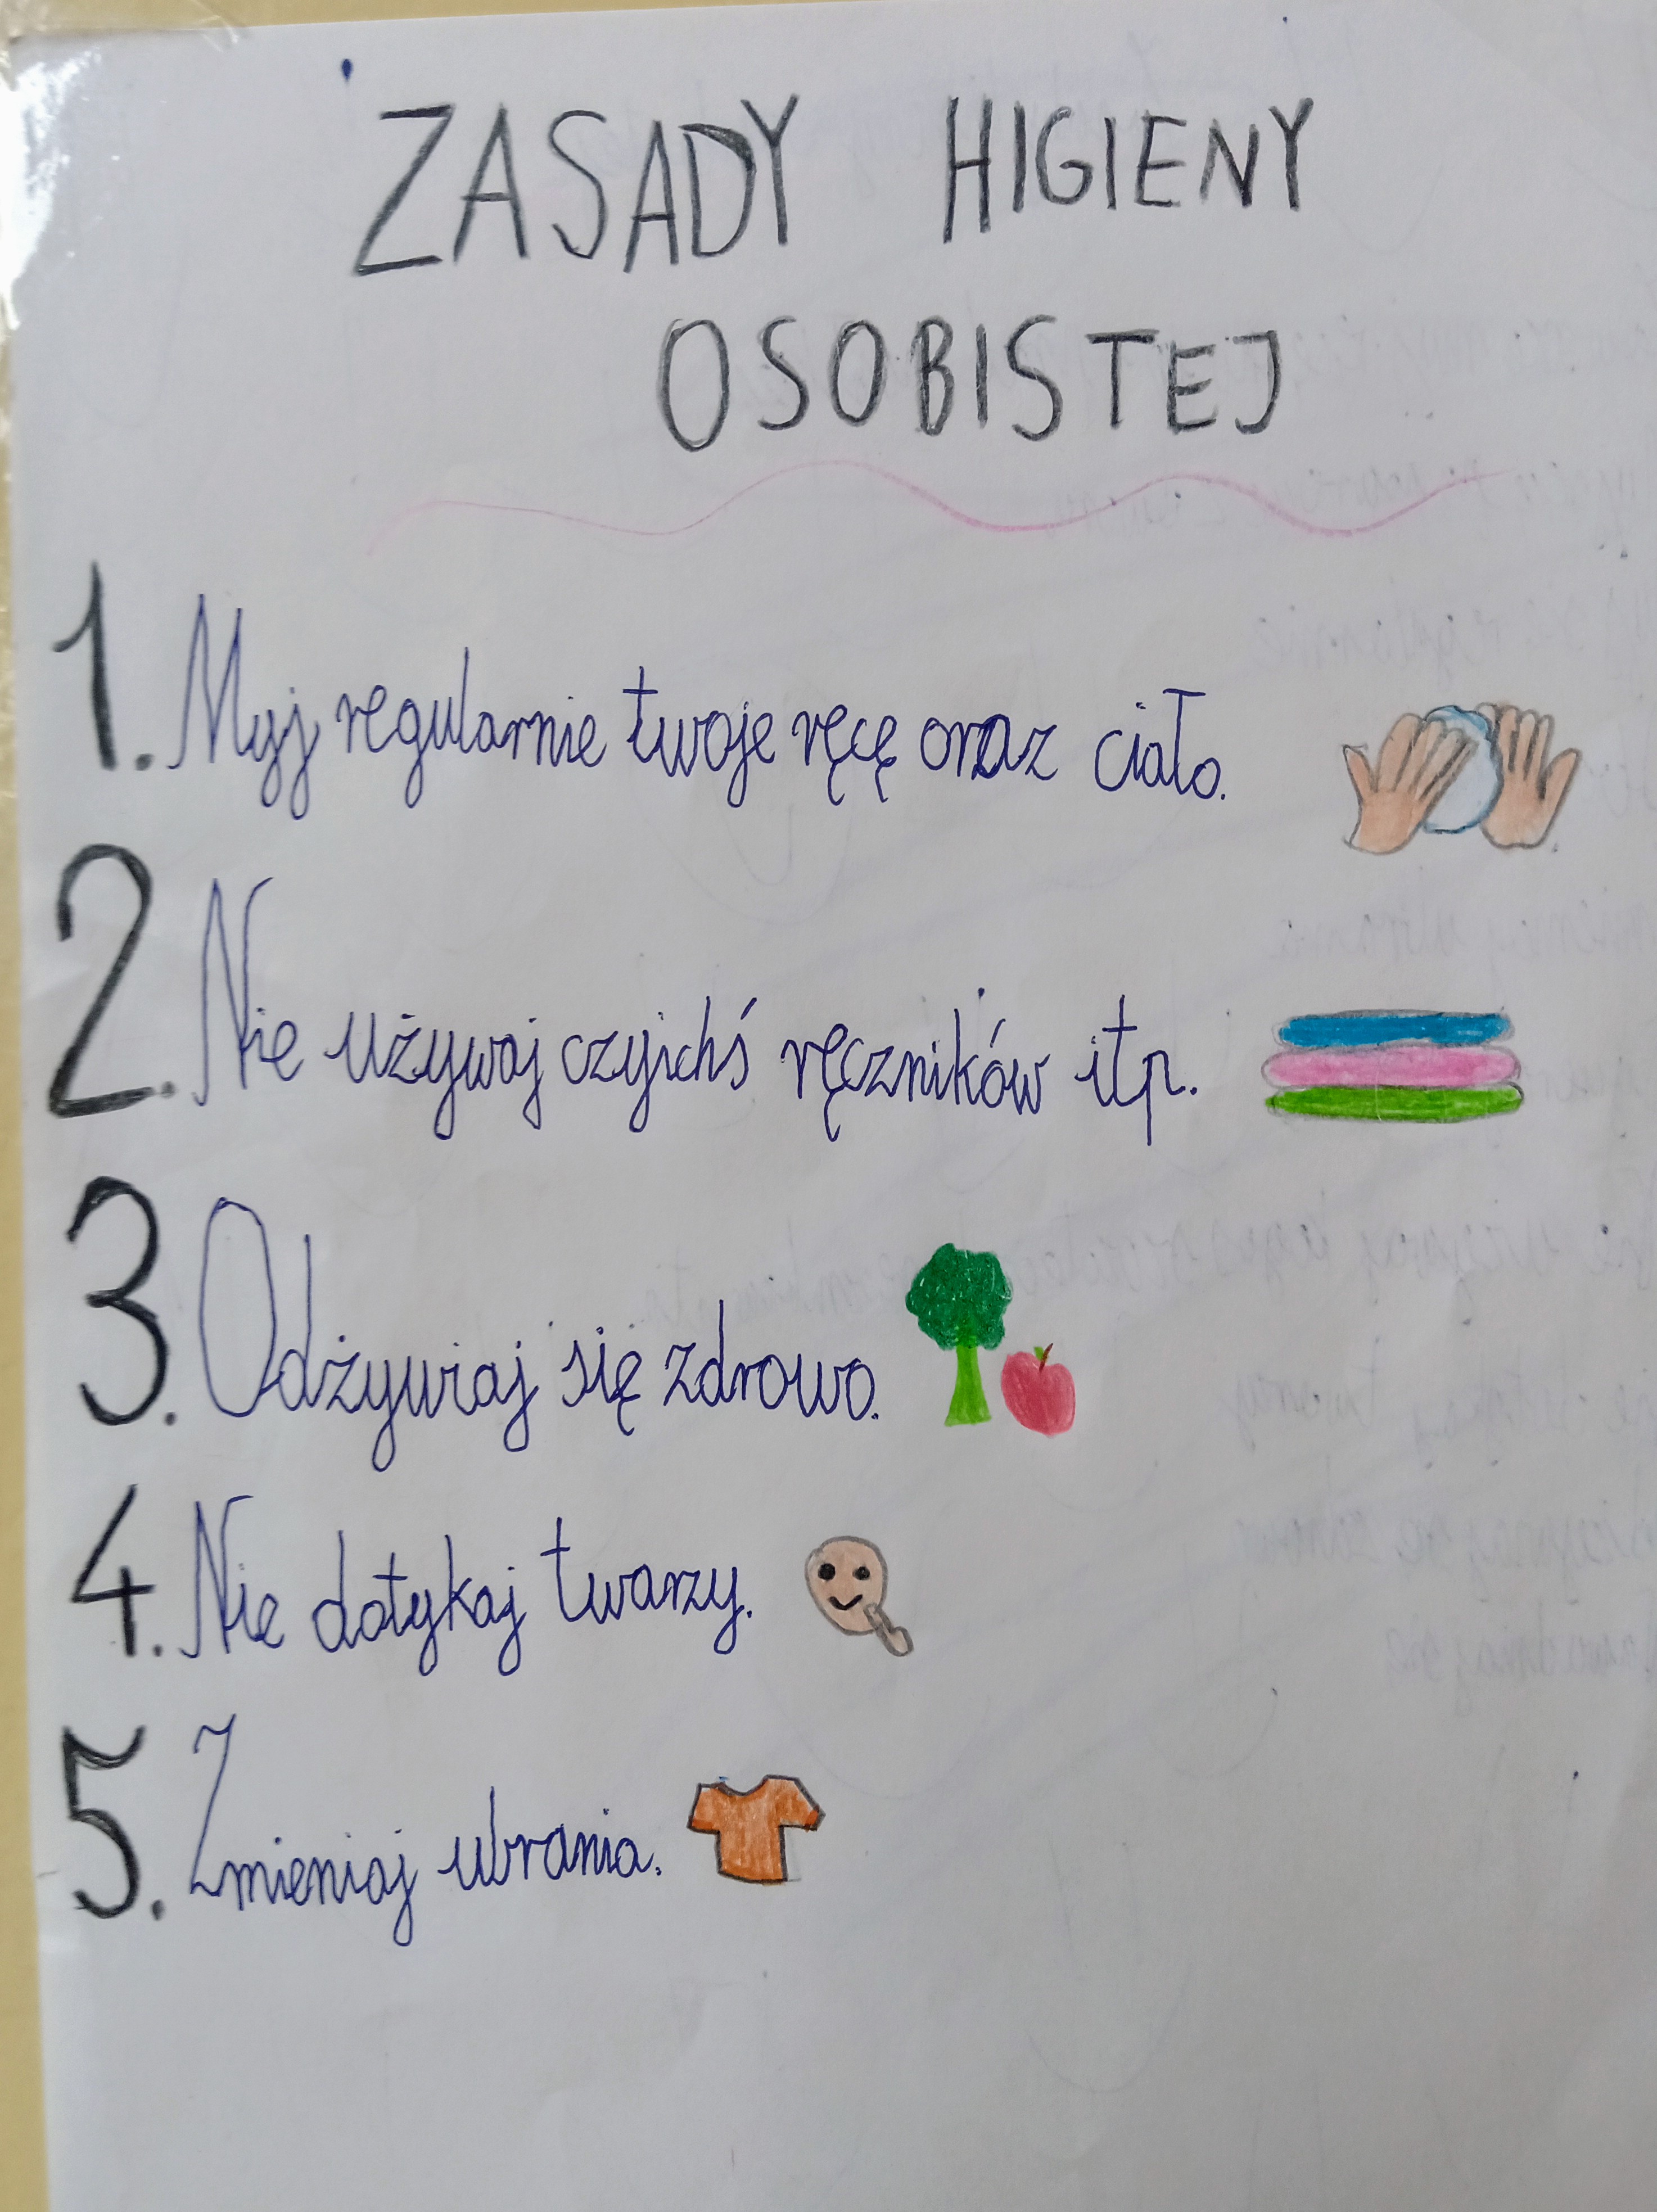 ZASADY HIGIENY
OSOBISTEJ
1. Myj regularnie twoje ręcę oraz ciało.
2. Nie używaj czyichś ręczników itp.
3. Odżywiaj się zdrowo.
4. Nie dotykaj twarzy.
5. Zmieniaj ubrania.